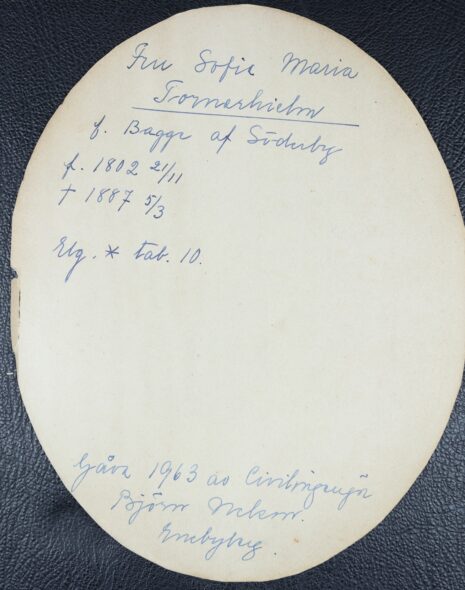 Fru Sofie Maria
Tornerhielm
f. Bagge af Söderby
f. 1802 21/11
† 1887 5/3
Elg. * tab. 10.
Gåva 1963 av Civilingenjör
Björn
Enebyberg.